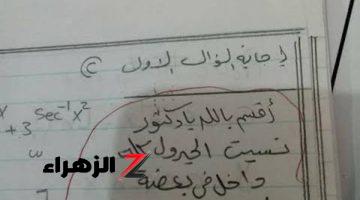 إجابة السؤال الاول C
x
+3 sec⁻¹x²
أقسم بالله يا دكتور
نسيت الجدول كله
داخل في بعضه
الزهراء